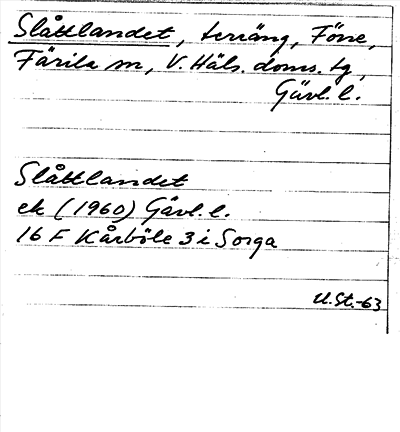 Slåttlandet, terräng, Föne,
Färila sn, V. Häls. doms. tg,
Gävl. l.
Slåttlandet
ek (1960) Gävl. l.
16 F Kårböle 3 i Sorga
U.St.-63